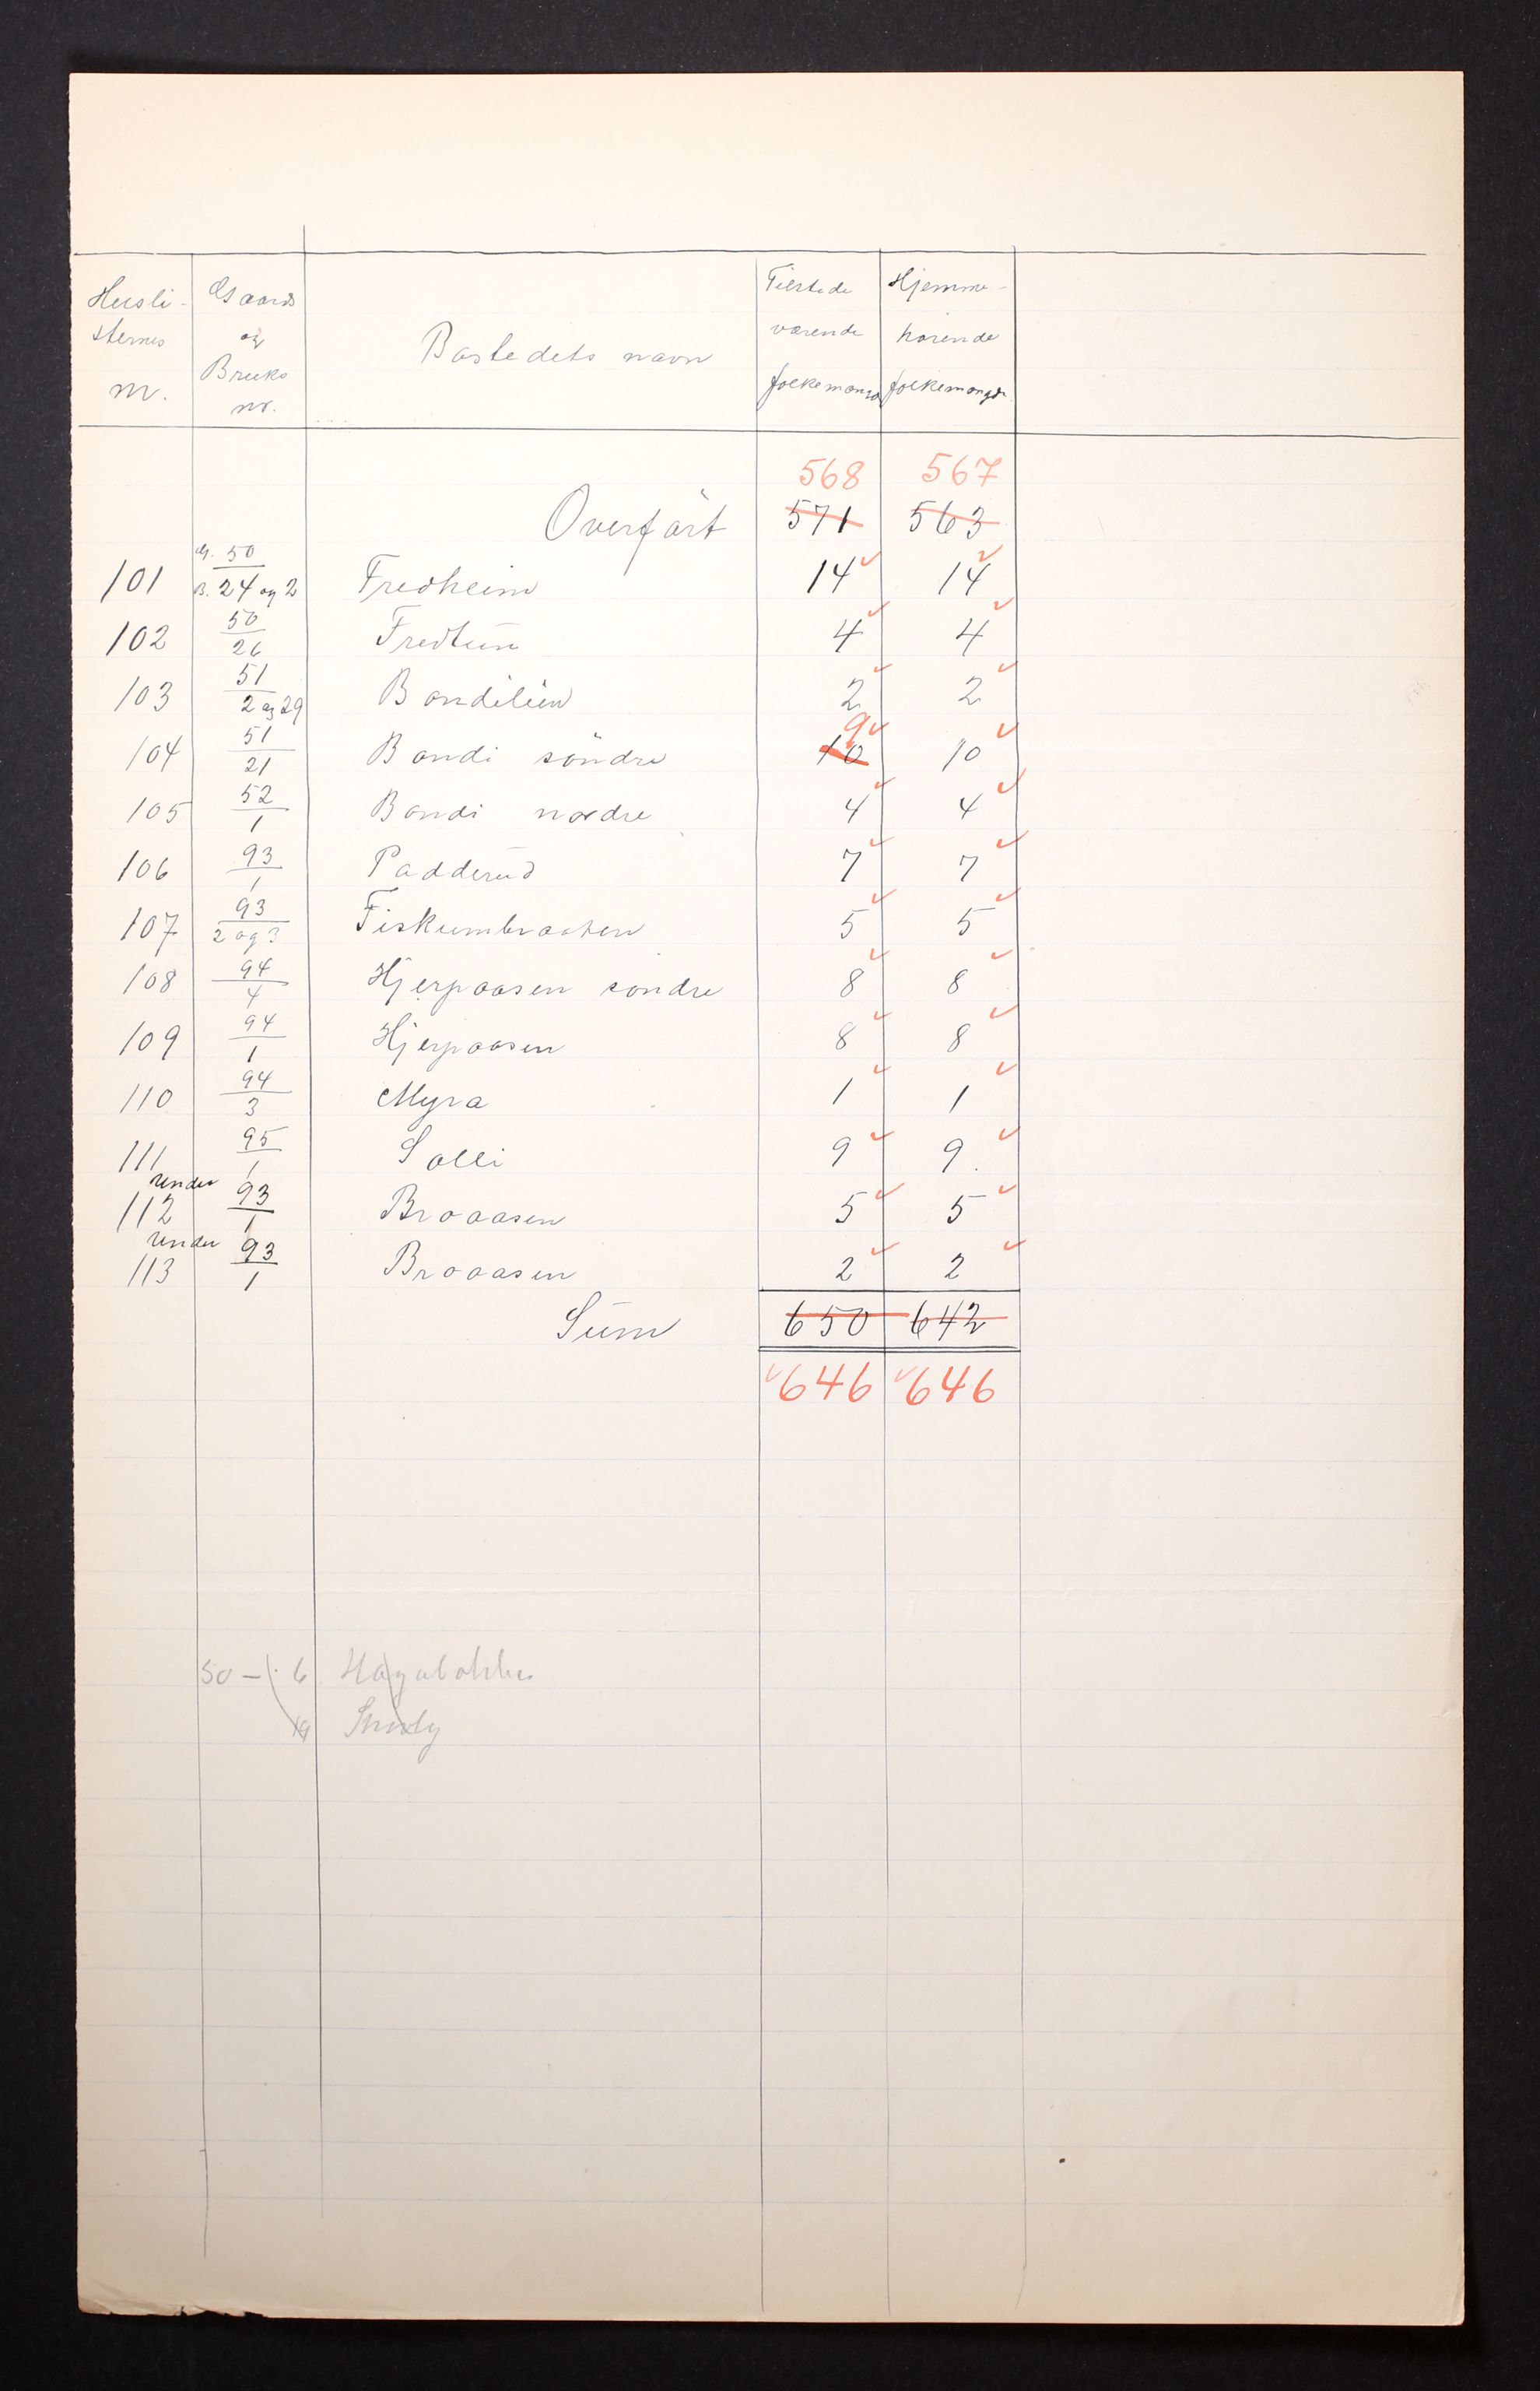 Husli- Gaards Bostedets navn Tilstede Hjemme-
sternes og værende hørende
nr. Bruks nr. folkemængd folkemængde
568 567
Overført 571 563
101 G. 50 B. 24 og 2 Fredheim 14 14
102 50/26 Fredtun 4 4
103 51/2 og 29 Bondilien 2 2
9
104 51/21 Bondi söndre 10 10
105 52/1 Bondi nordre 4 4
106 93/1 Padderud 7 7
107 93/2 og 3 Fiskumbraaten 5 5
108 94/4 Hjerpaasen søndre 8 8
109 94/1 Hjerpaasen 8 8
110 94/3 Myra 1 1
111 95/1 Solli 9 9
112 under 93/1 Broaasen 5 5
113 under 93/1 Broaasen 2 2
Sum 650 642
646 646
50 - 6
19